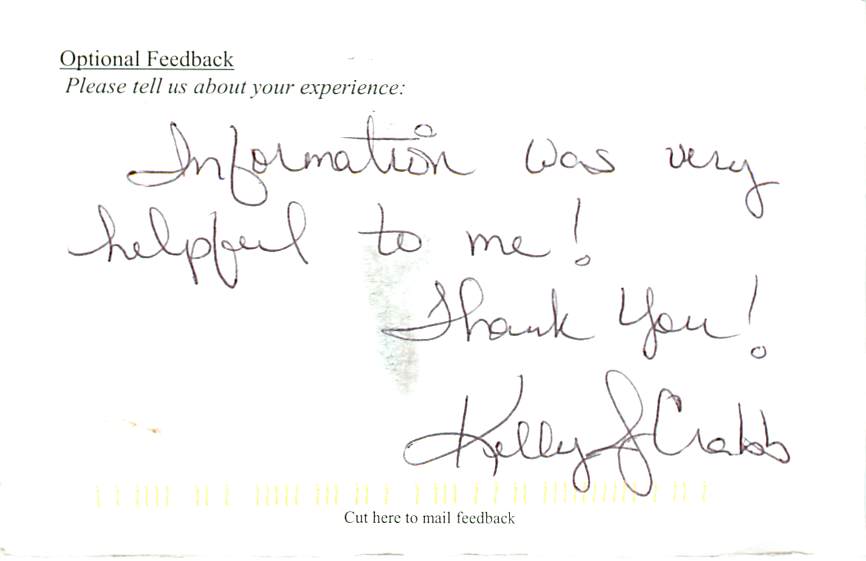 Optional Feedback
Please tell us about your experience:
Information was very
helpful to me!
Thank You!
Kelly J Crabb
Cut here to mail feedback